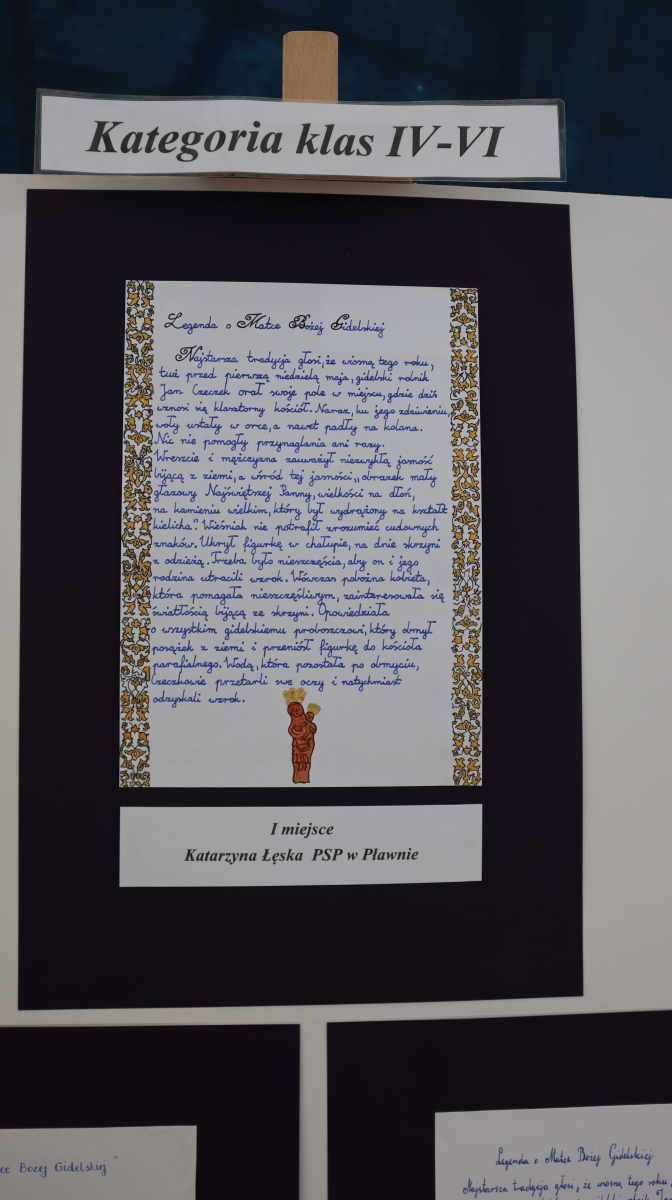 Kategoria klas IV-VI
Legenda o Matce Bożej Gidelskiej
Najstarsza tradycja głosi, że wiosną tego roku,
tuż przed pierwszą niedzielą maja, gidelski rolnik
Jan Czeczek orał swoje pole w miejscu, gdzie dziś
wznosi się klasztorny kościół. Naraz, ku jego zdziwieniu,
woły ustały w orce, a nawet padły na kolana.
Nic nie pomogły przynaglania ani razy.
Wreszcie i mężczyzna zauważył niezwykłą jasność
bijącą z ziemi, a wśród tej jasności „obrazek mały
głazowy Najświętszej Panny, wielkości na dłoń,
na kamieniu wielkim, który był wydrążony na kształt
kielicha". Wieśniak nie potrafił zrozumieć cudownych
znaków. Ukrył figurkę w chałupie, na dnie skrzyni
z odzieżą. Trzeba było nieszczęścia, aby on i jego
rodzina utracili wzrok. Wówczas pobożna kobieta,
która pomagała nieszczęśliwym, zainteresowała się
światłością bijącą ze skrzyni. Opowiedziała
o wszystkim gidelskiemu proboszczowi, który obmył
posążek z ziemi i przeniósł figurkę do kościoła
parafialnego. Wodą, która pozostała po obmyciu,
Czeczkowie przetarli swe oczy i natychmiast
odzyskali wzrok.
I miejsce
Katarzyna Łęska PSP w Pławnie
ce Bożej Gidelskiej"
Legenda o Matce Bożej Gidelskiej
Najstarsza tradycja głosi, że wiosną tego roku